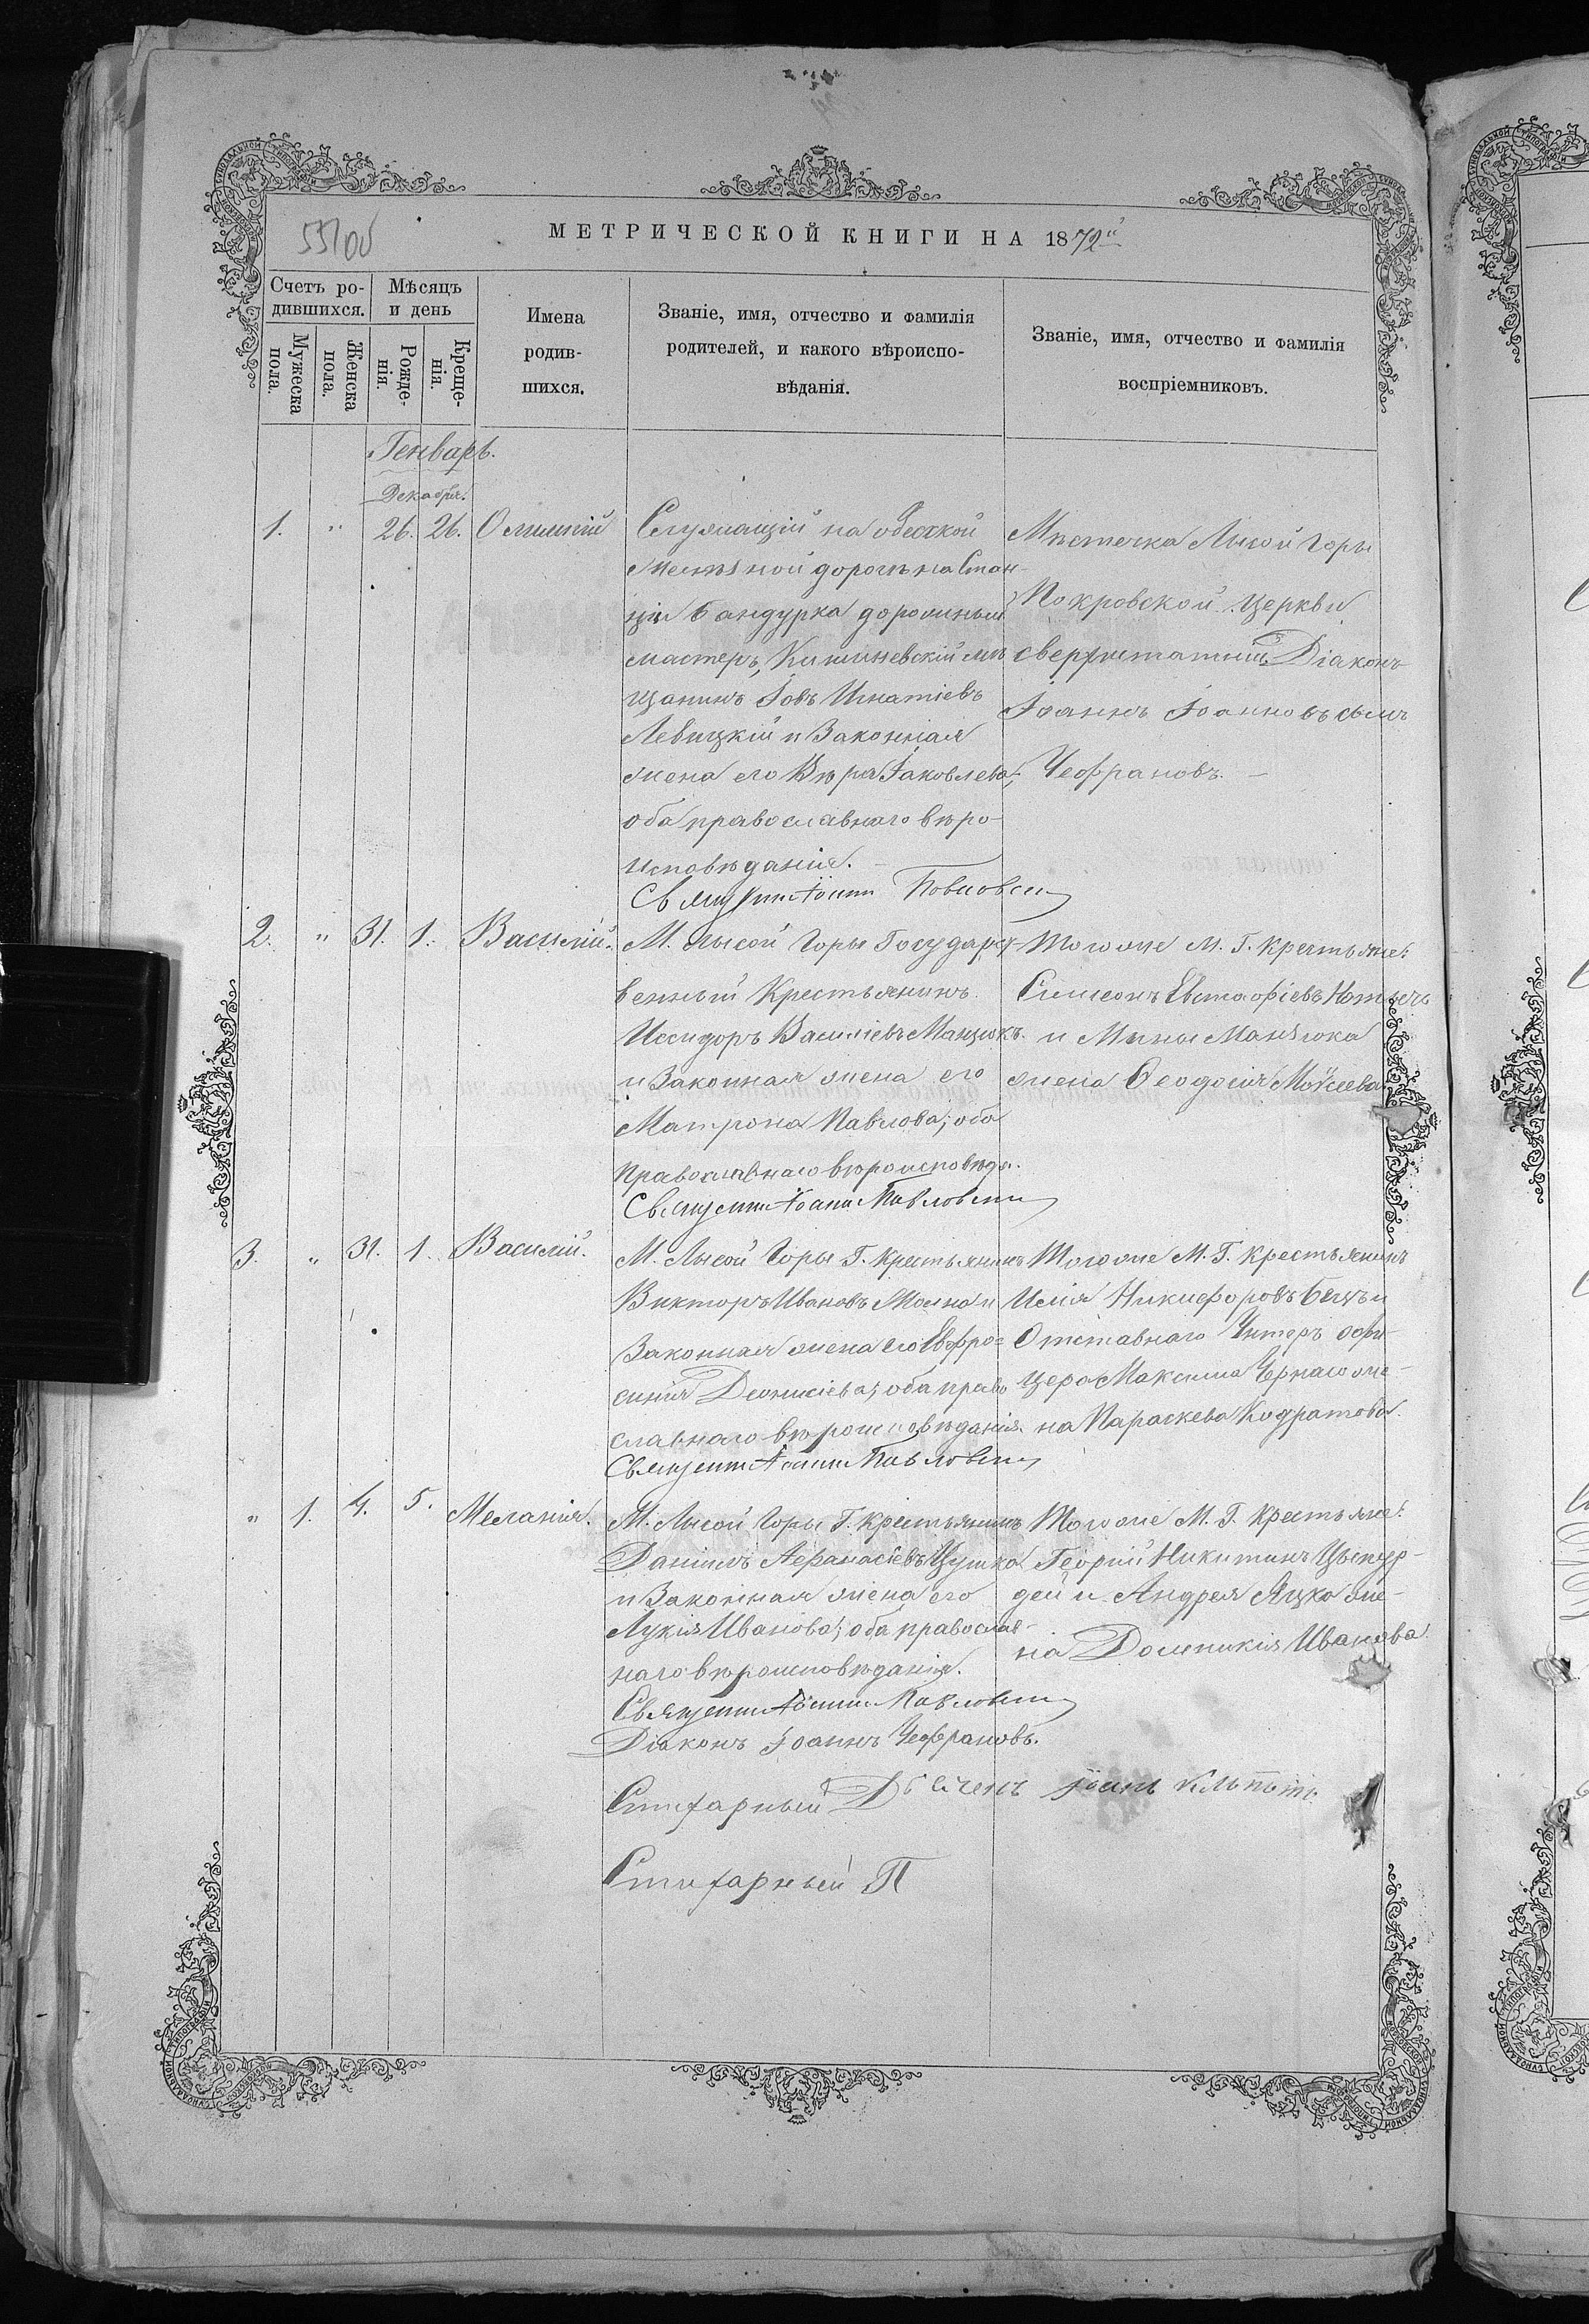 МЕТРИЧЕСКОЙ КНИГИ НА 1872й
Счетъ ро-
дившихся.
Мужеска
пола.
Женска
пола.
Мѣсяцъ
и день
Рожде-
нія.
Креще-
нія.
Имена
родив-
шихся.
Званіе, имя, отчество и фамилія
родителей, и какого вѣроиспо-
вѣданія.
Званіе, имя, отчество и фамилія
воспріемниковъ.
Генварь.
Декабря.
1. " 26. 26.
Служащій на Одесской
Желѣзной дорогѣ на Стан-
ціи Бандурка дорожный
мастеръ, Кишиневскій мѣ
щанинъ Іовъ Игнатіевъ
Левицкій и Законная
жена его Вѣра Іаковлева,
оба православнаго вѣро-
исповѣданія.
Мѣстечка Лысой Горы
Покровской Церкви
сверхштатный Діаконъ
Іоаннъ Іоанновъ сынъ
Чефрановъ.
2. " 31. 1. Василій.
М. Лысой Горы Государст-
венный Крестьянинъ
Исидоръ Василіевъ Манзюкъ
и Законная жена его
Матрона Павлова; оба
Православнаго вѣроисповѣда.
Священник Іоанн Павловски
Тогоже М. Г. Крестьяне:
Симеонъ Евстафіевъ
и Мины Манзюка
жена Ѳеодосія Моѵсеева
3. " 31. 1. Василій.
М. Лысой Горы Г. Крестьянинъ
Викторъ Ивановъ и
Законная жена его Евфро=
синія Деонисіева; оба право
славнаго вѣроисповѣданія.
Священник Іоанн Павловски
Тогоже М. Г. Крестьянинъ
Илія Никифоровъ и
Отставнаго Унтеръ офи-
цера Максима Чернаго же-
на Параскева Кодратова.
" 1. 4. 5. Меланія.
М. Лысой Горы Г. Крестьянинъ
Даніилъ Аѳанасіевъ Цушка
и Законная жена его
Лукія Иванова; оба православ-
наго вѣроисповѣданія.
Священник Іоанн Павловски
Діаконъ Іоаннъ Чефрановъ.
Тогоже М. Г. Крестьяне:
Георгій Никитинъ
дей и Андрея Яцко же-
на Домникія Иванова.
Стихарный Дьячекъ Іоанъ
Стихарный П